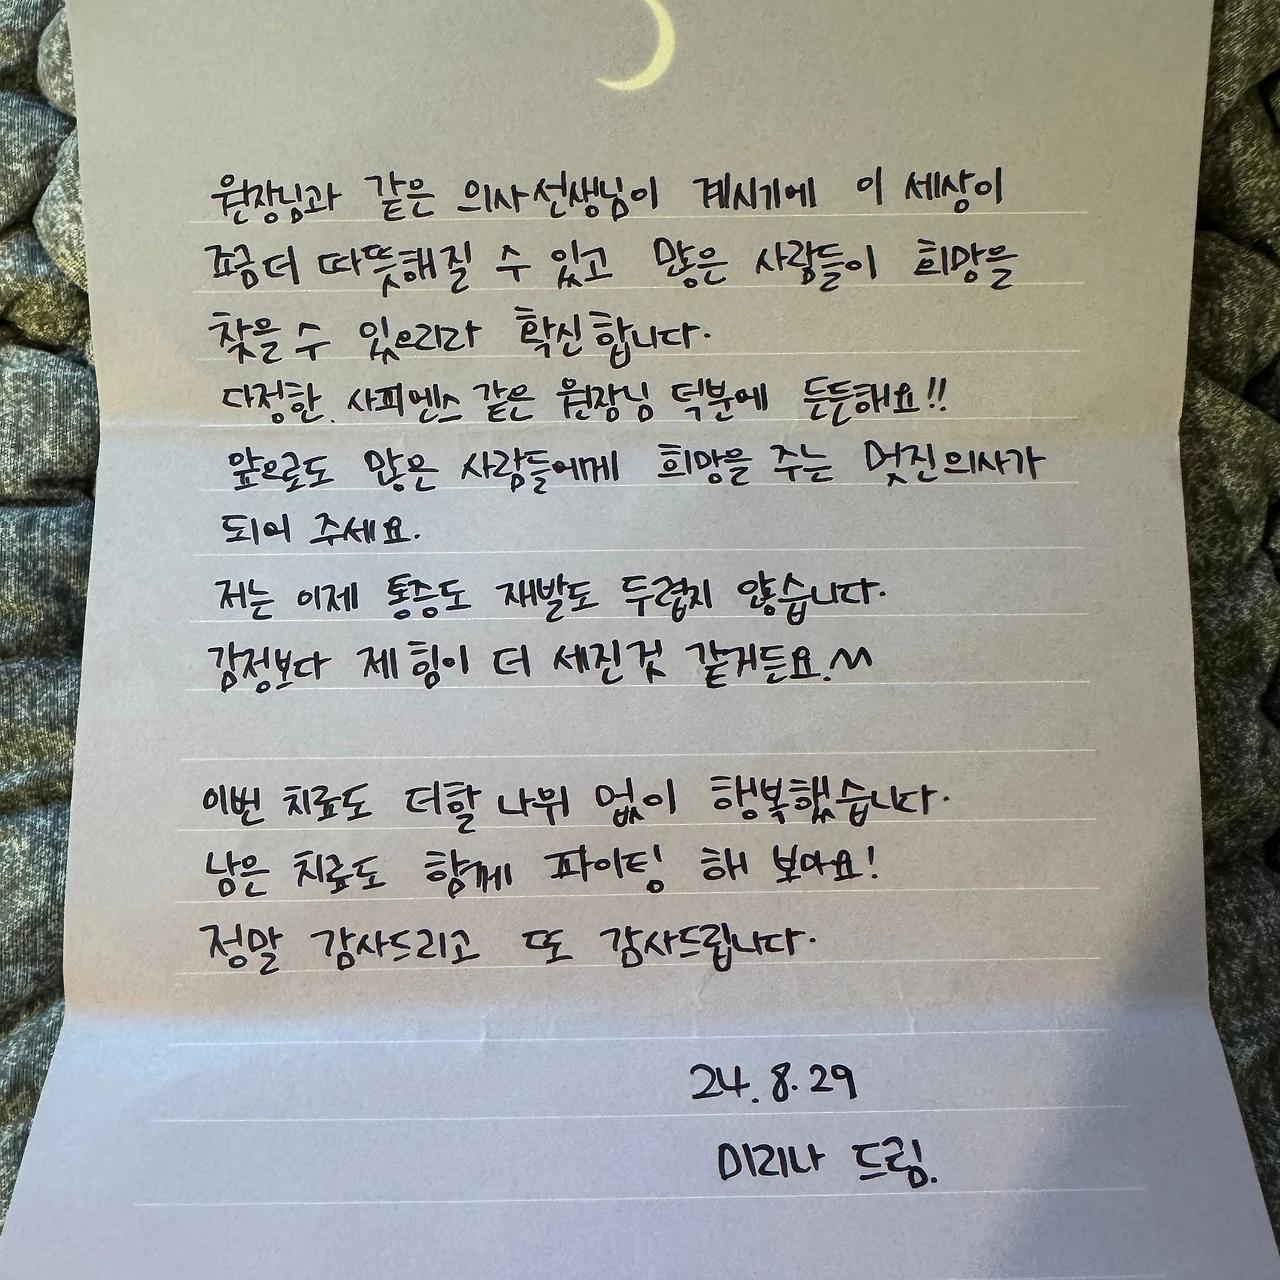 원장님과 같은 의사선생님이 계시기에 이 세상이
쪼금 더 따뜻해질 수 있고 많은 사람들이 희망을
찾을 수 있으리라 확신합니다.
다정한 사피엔스 같은 원장님 덕분에 든든해요!!
앞으로도 많은 사람들에게 희망을 주는 멋진의사가
되어 주세요.
저는 이제 통증도 재발도 두렵지 않습니다.
감정보다 제 힘이 더 세진것 같거든요.^^
이번 치료도 더할 나위 없이 행복했습니다.
남은 치료도 함께 파이팅 해 보아요!
정말 감사드리고 또 감사드립니다.
24. 8. 29
미리나 드림.